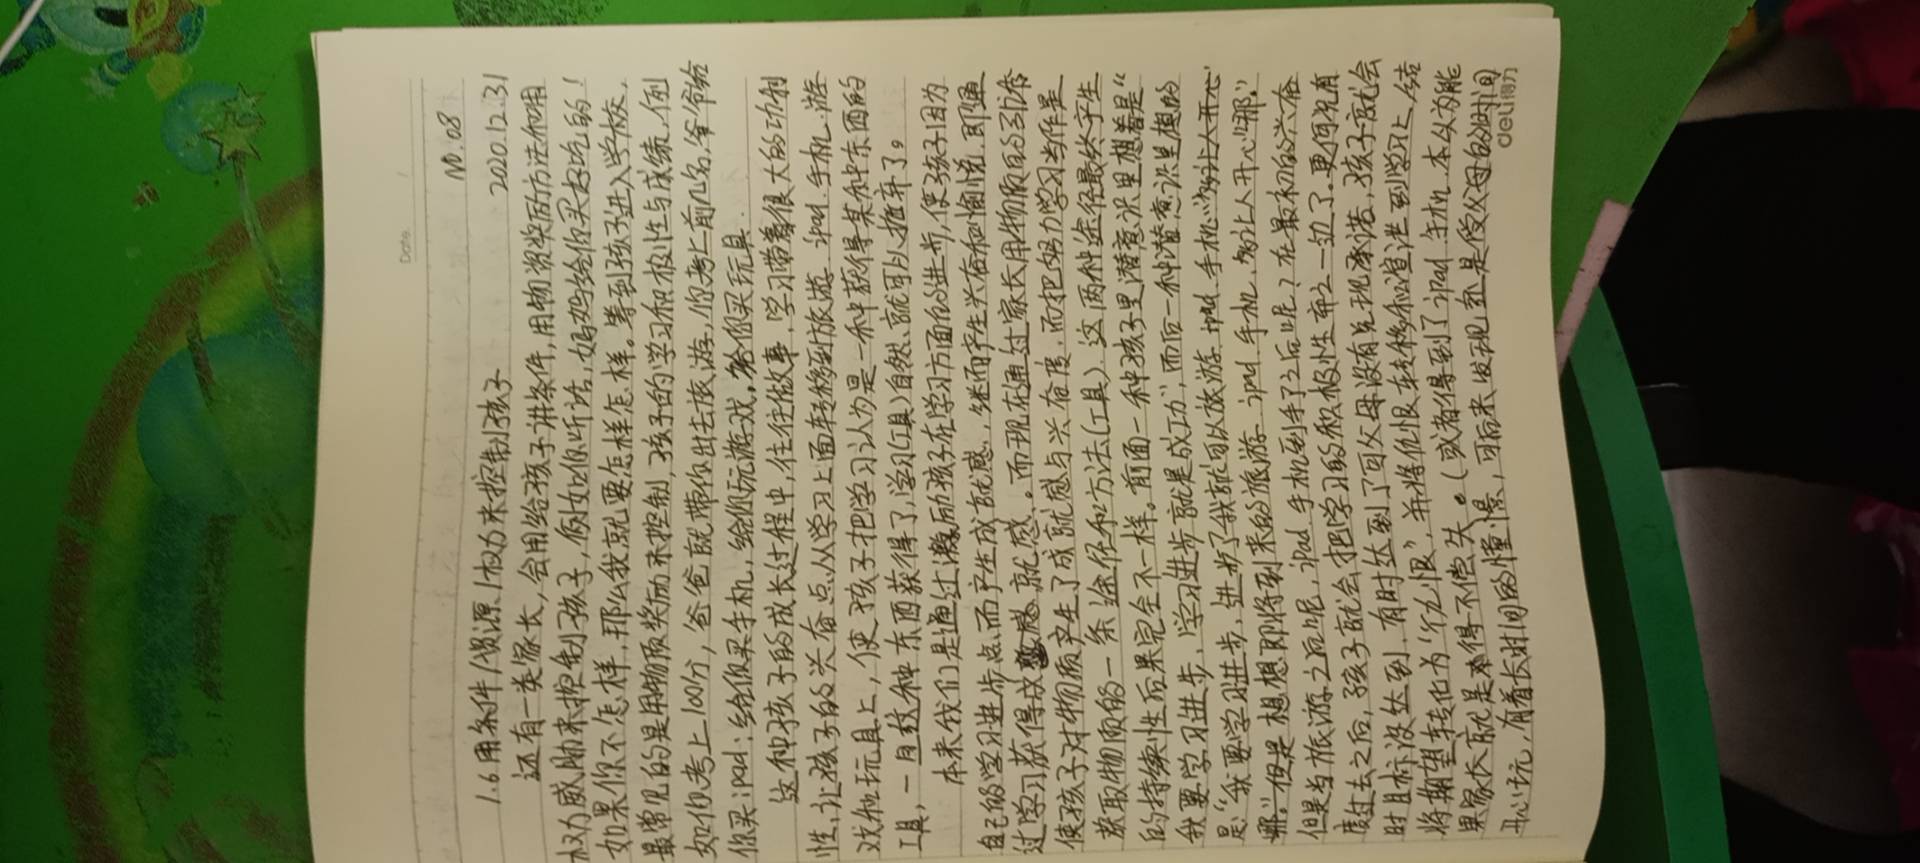 Date.
NO.08
1.6用条件/资源/权力来控制孩子 2020.12.31
还有一类家长,会用给孩子讲条件,用物资奖励方法和用
权力威胁来控制孩子,例如你听话,妈妈给你买超吃的!
如果你不怎样,那么我就要怎样怎样。等到孩子进入学校,
最常见的是用物质奖励来控制,孩子的学习积极性与成绩,例
如你考上100分,爸爸就带你出去旅游,你考上前几名,爷爷给
你买ipad;给你买手机,给你玩游戏,给你买玩具.
这种孩子的成长过程中,往往做事,学习带着很大的功利
性,让孩子的兴奋点从学习上面转移到旅游、ipad、手机、游
戏和玩具上,使孩子把学习认为是一种获得某种东西的
工具,一旦这种东西获得了,学习(工具)自然就可以抛弃了。
本来我们是通过激励孩子在学习方面的进步,使孩子因为
自己的学习进步点而产生成就感,继而产生兴奋和愉悦,即通
过学习获得成就感。而现在通过家长用物质的引诱
使孩子对物质产生了成就感与兴奋度,而把努力学习当作是
获取物质的一条途径和方法(工具)这两种途径最终产生
的持续性后果完全不一样。前面一种孩子里潜意识里想着是“
我要学习进步,学习进步就是成功”,而后一种潜意识里想的
是:“我要学习进步,进步了我就可以旅游、ipad、手机,多让人开心
哪。”但是想想即将到来的旅游、ipad、手机,多让人开心哪。”
但是当旅游之后呢,ipad手机到手了之后呢?在最初的兴奋
度过去之后,孩子就会把学习的积极性弃之一边了。更何况有
时目标没达到,有时达到了可父母没有兑现承诺,孩子就会
将期望转化为“仇恨”,并将仇恨转移和宣泄到学习上,结
果家长就是难得不偿失。(或者得到了ipad、手机,本以为能
开心玩,有着长时间的憧憬,可后来发现就是受父母的时间
deli得力